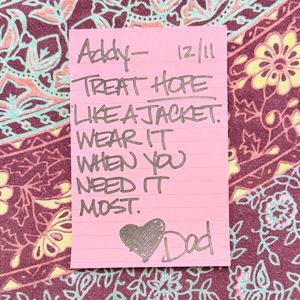 Addy- 12/11
TREAT HOPE
LIKE A JACKET.
WEAR IT
WHEN YOU
NEED IT
MOST.
Dad